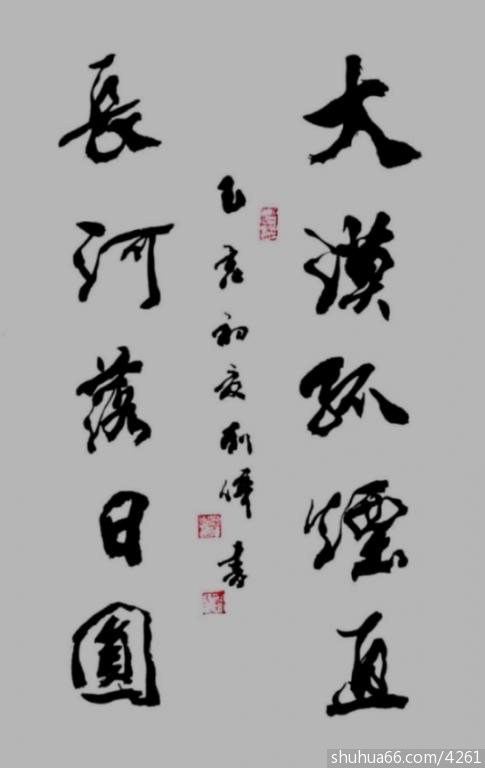 大漠孤煙直
長河落日圓
己亥初夏利偉書
shuhua66.com/4261